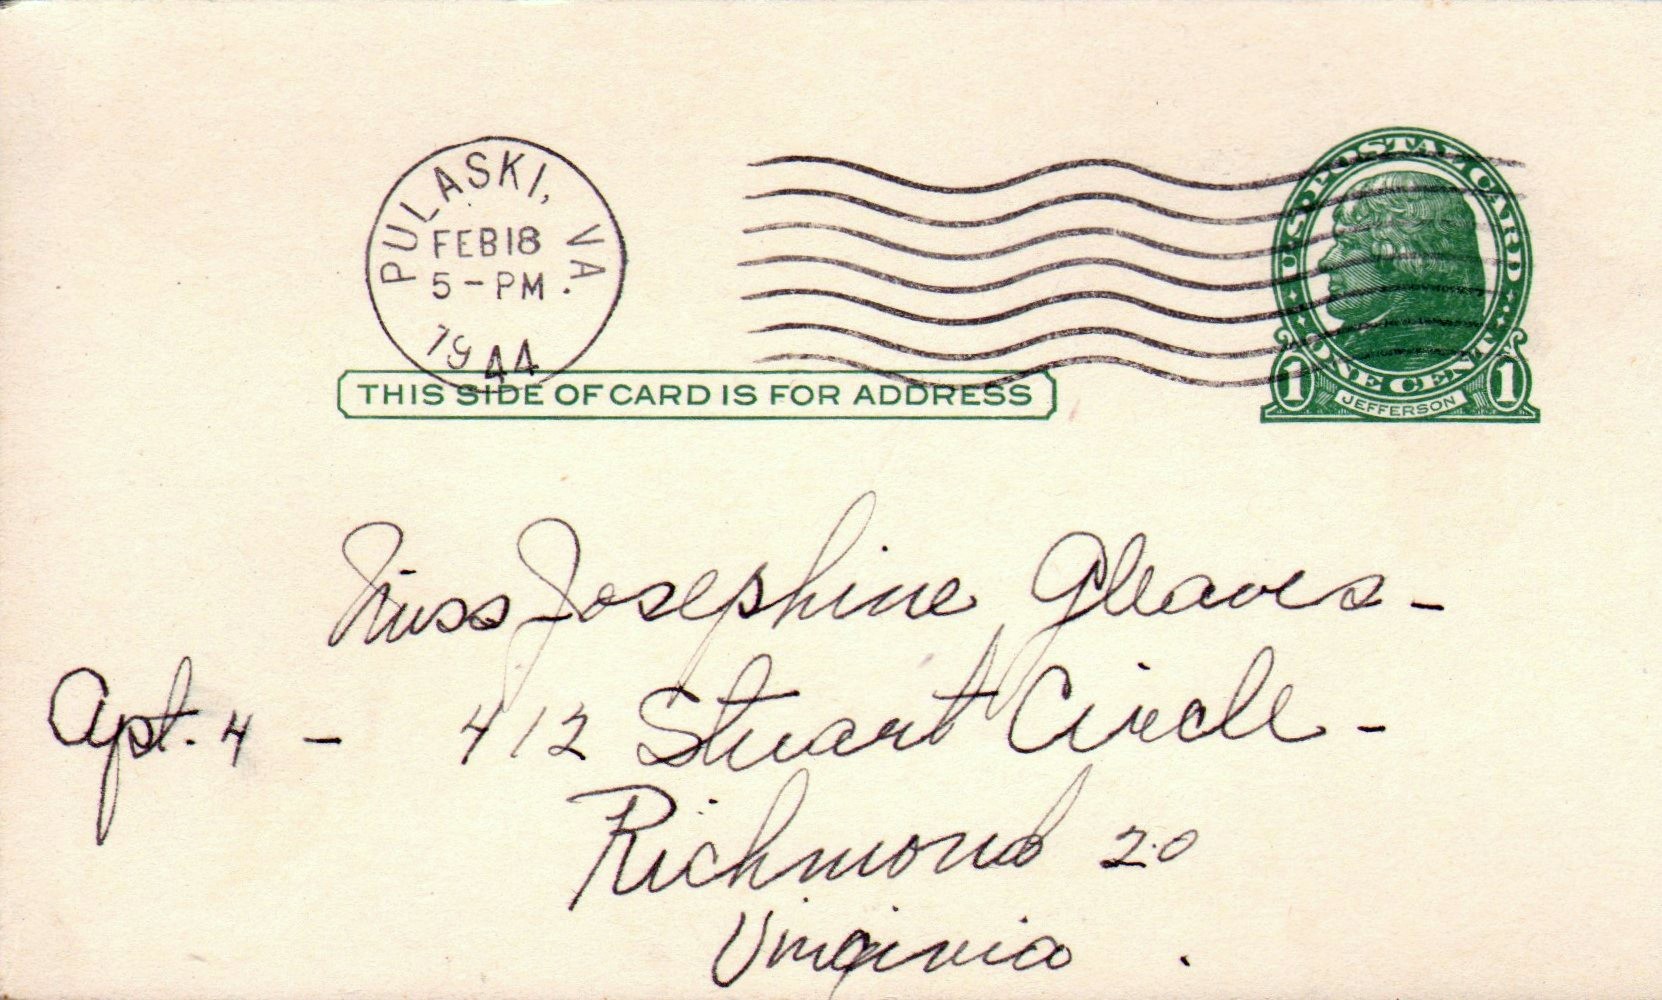 PULASKI, VA.
FEB 18
5-PM
1944
U.S. POSTAL CARD
ONE CENT
1 JEFFERSON 1
THIS SIDE OF CARD IS FOR ADDRESS
Miss Josephine Gleaves -
Apt. 4 - 412 Stuart Circle -
Richmond 20
Virginia .